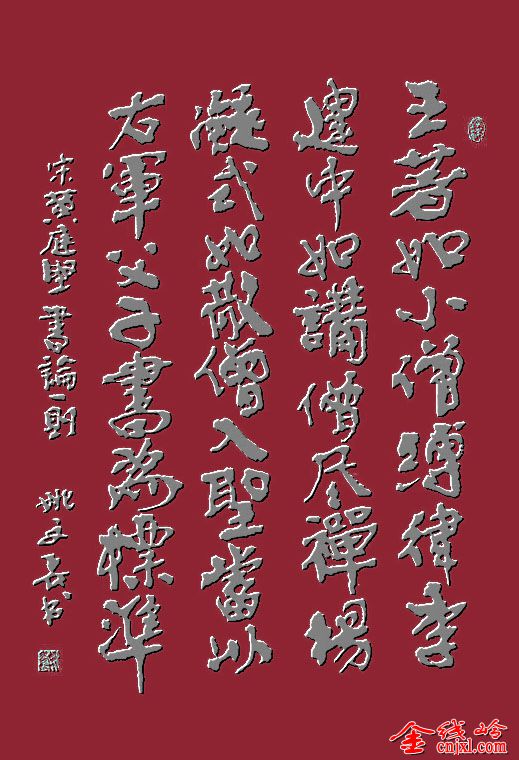 王著如小僧縛律李
建中如講僧参禪楊
凝式如散僧入聖當以
右軍父子書為標準
宋黄庭堅書論一則
姚文长书
金线岭
cnjxl.com